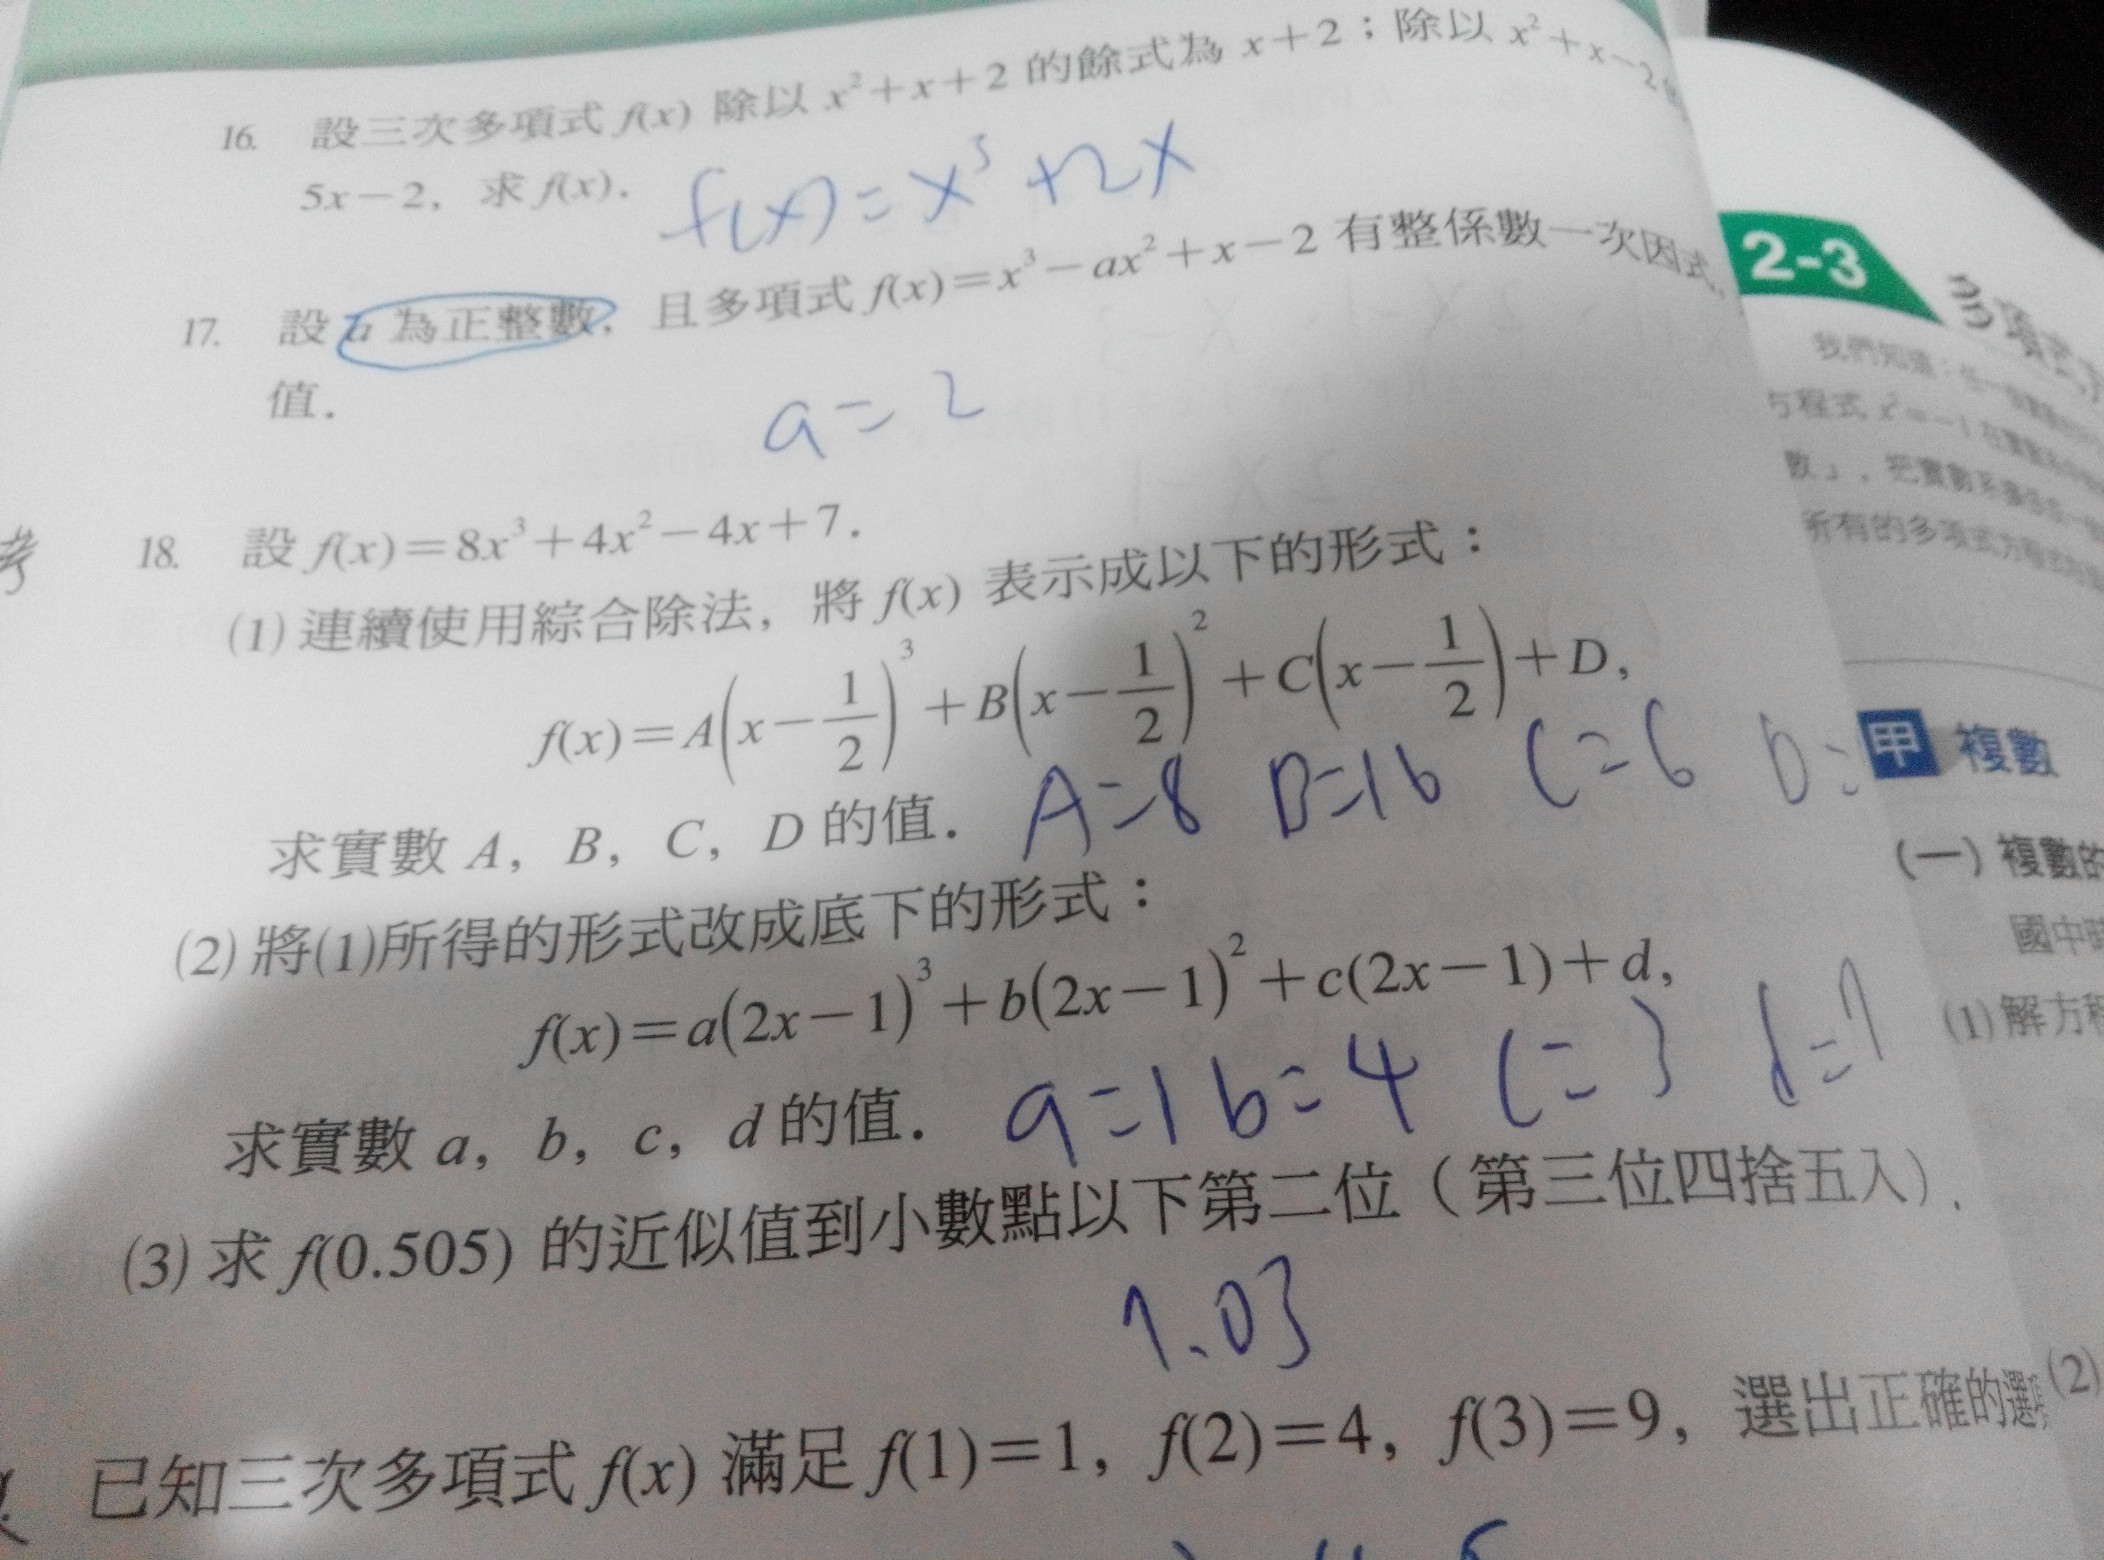 16. 設三次多項式 f(x) 除以 x²+x+2 的餘式為 x+2；除以 x²+x-2
5x-2, 求 f(x).
f(x)=x³+2x
17. 設 a 為正整數, 且多項式 f(x)=x³-ax²+x-2 有整係數一次因式,
值.
a=2
考
18. 設 f(x)=8x³+4x²-4x+7.
(1) 連續使用綜合除法, 將 f(x) 表示成以下的形式：
f(x)=A(x-1/2)³+B(x-1/2)²+C(x-1/2)+D,
求實數 A, B, C, D 的值.
A=8 B=16 C=6 D=
(2) 將(1)所得的形式改成底下的形式：
f(x)=a(2x-1)³+b(2x-1)²+c(2x-1)+d,
求實數 a, b, c, d 的值.
a=1 b=4 c=3 d=7
(3) 求 f(0.505) 的近似值到小數點以下第二位（第三位四捨五入）.
7.03
已知三次多項式 f(x) 滿足 f(1)=1, f(2)=4, f(3)=9, 選出正確的選
2-3
多項式方
我們知道：任一
方程式 x²=-1 在實數
數」, 把實數系
所有的多項式方程式
甲 複數
(一) 複數的
國中時
(1) 解方程
(2)